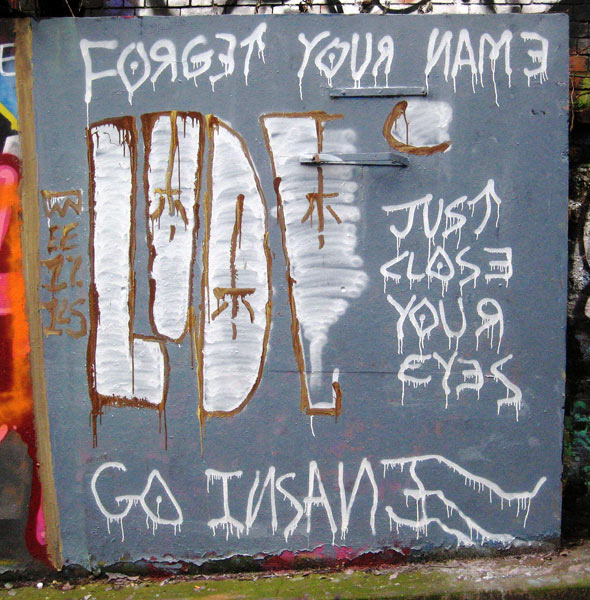 FORGET YOUR NAME
JUST
CLOSE
YOUR
EYES
GO INSANE